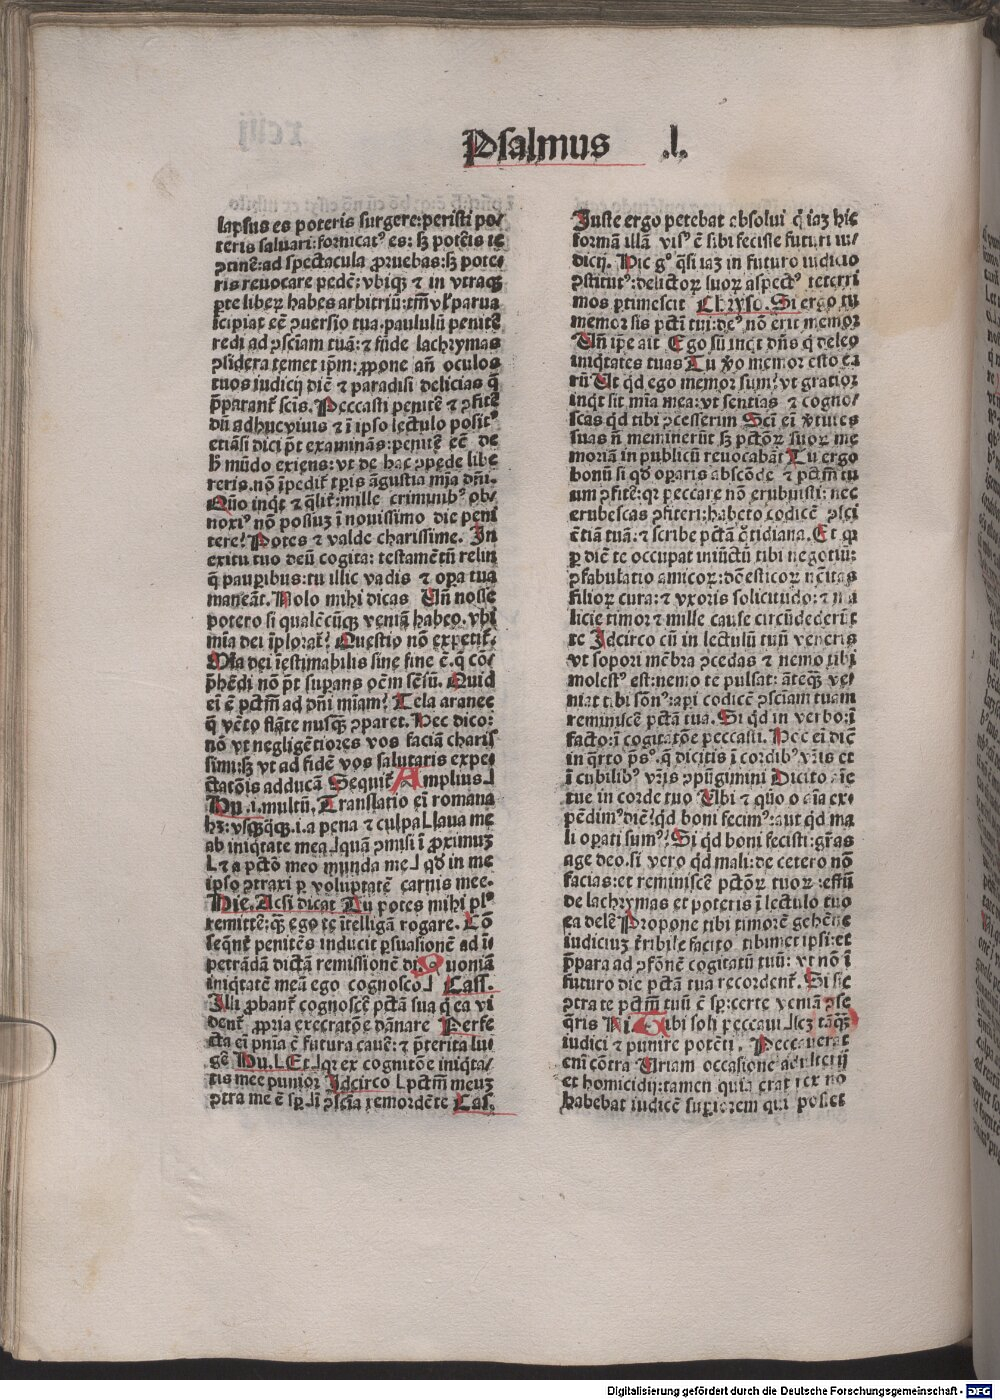 Psalmus .l.
lapsus es poteris surgere:peristi po/
teris saluari:fornicatꝰ es:sꝫ potēis te
ꝯtinē:ad spectacula ꝓruebas:sꝫ pote/
ris reuocare pedē:vbiqꝫ ⁊ in vtraqꝫ
ꝑte liberꝝ habes arbitriū:tm̄ vl̓ parua
īcipiat eē ꝯuersio tua.paululū penitē
redi ad ꝯsciam tuā:⁊ fūde lachrymas
ꝯsidera temet ip̄m:ꝓpone añ oculos
tuos iudicij diē ⁊ paradisi delicias q̄
p̄parant̉ scis.Peccasti penitē ⁊ ꝯfitē
dū adhuc viuis ⁊ ī ipso lectulo positꝰ
etiāsi dici p̄t examinās:penitē eē de
h̓ mūdo exiens:vt de hac ꝯpede libe
reris.nō īpedit̉ tꝑis āgustia mīa dn̄i.
Quō inq̇t ⁊ q̄lit̓:mille criminibꝰ ob/
noxiꝰ nō possuꝫ ī nouissimo die peni
tere? Potes ⁊ valde charissime. In
exitu tuo deū cogita: testamētū relin
q̄ pauꝑibus:tu illic vadis ⁊ oꝑa tua
maneāt. Nolo mihi dicas Vn̄ nosse
potero si qualēcūqꝫ veniā habeo.vbi
mīa dei īplorat̉? Questio nō expetit̉.
Mīa dei īestimabilis sine fine ē.q̄ cō/
p̄hēdi nō p̄t suꝑans oēm sēsū. Quid
ei ē pctm̄ ad dn̄i miam? Tela aranee
q̄ vēto flāte nusqꝫ ꝯparet. Hec dico:
nō vt negligētiores vos faciā charis
simi:sꝫ vt ad fidē vos salutaris expe/
ctatōis adducā Sequit̉ Amplius⅃
Hu.i.multū. Translatio ei romana
hꝫ:vsqꝫq̄qꝫ.i.a pena ⁊ culpa L laua me
ab iniq̇tate mea⅃quā ꝯmisi ī ꝓximuꝫ
L⁊ a pctō meo munda me⅃ qd̓ in me
ipso ꝯtraxi ꝑ voluptatē carnis mee.
Hie. Acsi dicat Tu potes mihi plꝰ
remittē:qꝫ ego te ītelligā rogare. Cō
seq̄nt̉ penitēs inducit ꝑsuasionē ad ī/
petrādā dictā remissionē di. Quoniā
iniq̇tatē meā ego cognosco⅃ Cass.
Illi ꝓbant̉ cognoscē pctā sua q̇ ea vi
dent̉ ꝓpria execratōe dānare Perfe
cta ei pnīa ē futura cauē:⁊ p̄terita lui
gē Hu.LEt⅃qꝛ ex cognitōe iniq̇ta/
tis mee punior Idcirco Lpctm̄ meuꝫ
ꝯtra me ē sꝑ⅃ī ꝯscīa remordēte Cas.
Iuste ergo petebat absolui q̇ iaꝫ hic
formā illā visꝰ ē sibi fecisse futuri iu/
dicij. Hic gͦ q̄si iaꝫ in futuro iudicio
ꝯstitutꝰ:delictoꝝ suoꝝ aspectꝰ teterri
mos ꝑtimescit Chryso. Si ergo tu
memor sis pcti tui:deꝰ nō erit memor
Vn̄ ip̄e ait Ego sū inq̇t dn̄s q̇ deleo
iniq̇tates tuas Tu v̓o memor esto ea
rū Ut qd̓ ego memor sum? vt gratior
inq̇t sit mīa mea:vt sentias ⁊ cogno/
scas qd̓ tibi ꝯcesserim Scī ei v̓tutes
suas n̄ meminerūt sꝫ pctōꝝ suoꝝ me
moriā in publicū reuocabāt Tu ergo
bonū si qd̓ oꝑaris abscōde ⁊ pctm̄ tu
um ꝯfitē:qꝛ peccare nō erubuisti: nec
erubescas ꝯfiteri:habeto codicē ꝯsci
ētiā tuā:⁊ scribe pctā q̄tidiana. Et qꝛ
ꝑ diē te occupat iniūctū tibi negotiū:
ꝓfabulatio amicoꝝ:domesticoꝝ nc̄itas
filioꝝ cura:⁊ vxoris solicitudo:⁊ ma
licie timor ⁊ mille cause circūdederūt
te Idcirco cū in lectulū tuū veneris
vt sopori mēbra ꝯcedas ⁊ nemo tibi
molestꝰ est:nemo te pulsat: āteqꝫ ve/
niat tibi sōnꝰ:aꝑi codicē ꝯsciam tuam
reminiscē pctā tua. Si qd̓ in verbo:ī
facto:ī cogitatōe peccasti. Hoc ei diē
in q̇rto psͦ.q̄ dicitis ī cordibꝰ vr̄is et
ī cubilibꝰ vr̄is ꝯpūgimini Dicito aīe
tue in corde tuo Ubi ⁊ quo o aīa ex/
pēdimꝰ diē?qd̓ boni fecimꝰ:aut qd̓ ma
li oꝑati sumꝰ? Si qd̓ boni fecisti:gr̄as
age deo.si vero qd̓ mali:de cetero nō
facias:et reminiscē pctōꝝ tuoꝝ:effū
de lachrymas et poteris ī lectulo tuo
ea delē Propone tibi timorē gehēne
iudiciuꝫ t̓ribile facito tibimet ipsi:et
p̄para ad ꝯfōnē cogitatū tuū: vt nō ī
futuro die pctā tua recordent̉. Si sic
ꝯtra te pctm̄ tuū ē sꝑ:certe veniā ꝯse
q̄ris Ni. Tibi soli peccaui⅃scꝫ tāqꝫ
iudici ⁊ punire potēti. Peccauerat
eni cōtra Uriam occasione adulterij
et homicidij:tamen quia erat rex no
habebat iudicē suꝑiorem qui posset